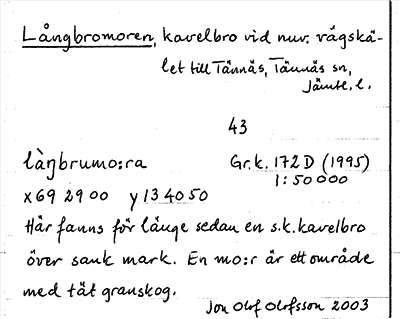 Långbromoren, kavelbro vid nuv. vägskä-
let till Tännäs, Tännäs sn,
Jämtl. l.
43
làŋbrumo:ra Gr.k. 172 D (1995)
1:50000
x 69 29 00 y 13 40 50
Här fanns för länge sedan en s.k. kavelbro
över sank mark. En mo:r är ett område
med tät granskog.
Jon Olof Olofsson 2003